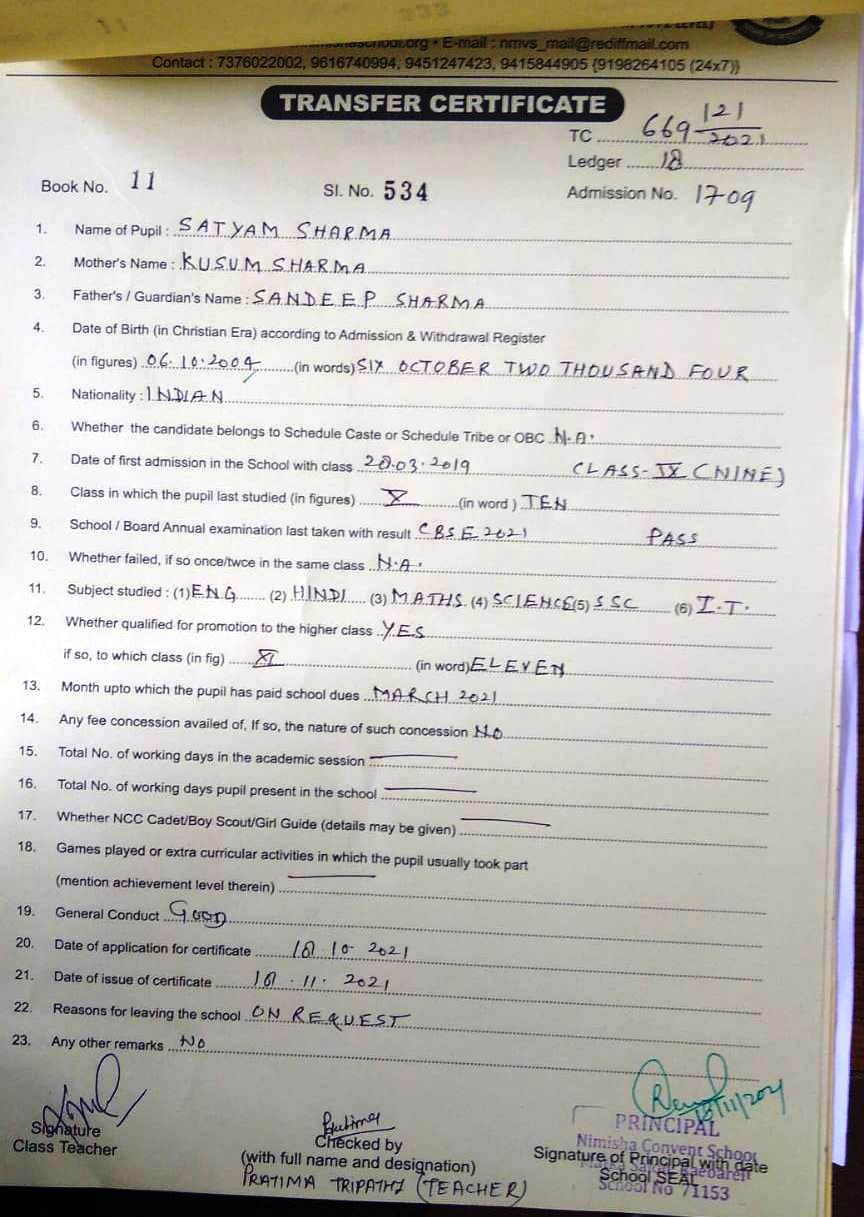 school.org • E-mail : nmvs_mail@rediffmail.com
Contact : 7376022002, 9616740994, 9451247423, 9415844905 {9198264105 (24x7)}
TRANSFER CERTIFICATE
TC 669 121/2021
Ledger 18
Book No. 11 Sl. No. 534 Admission No. 1709
1. Name of Pupil : SATYAM SHARMA
2. Mother's Name : KUSUM SHARMA
3. Father's / Guardian's Name : SANDEEP SHARMA
4. Date of Birth (in Christian Era) according to Admission & Withdrawal Register
(in figures) 06.10.2004 (in words) SIX OCTOBER TWO THOUSAND FOUR
5. Nationality : INDIAN
6. Whether the candidate belongs to Schedule Caste or Schedule Tribe or OBC N.A.
7. Date of first admission in the School with class 28.03.2019 CLASS-IX (NINE)
8. Class in which the pupil last studied (in figures) X (in word ) TEN
9. School / Board Annual examination last taken with result CBSE 2021 PASS
10. Whether failed, if so once/twce in the same class N.A.
11. Subject studied : (1) ENG (2) HINDI (3) MATHS (4) SCIENCE (5) SSC (6) I.T.
12. Whether qualified for promotion to the higher class YES
if so, to which class (in fig) XI (in word) ELEVEN
13. Month upto which the pupil has paid school dues MARCH 2021
14. Any fee concession availed of, If so, the nature of such concession NO
15. Total No. of working days in the academic session
16. Total No. of working days pupil present in the school
17. Whether NCC Cadet/Boy Scout/Girl Guide (details may be given)
18. Games played or extra curricular activities in which the pupil usually took part
(mention achievement level therein)
19. General Conduct GOOD
20. Date of application for certificate 18 10 2021
21. Date of issue of certificate 18.11.2021
22. Reasons for leaving the school ON REQUEST
23. Any other remarks NO
Signature
Class Teacher
Checked by
(with full name and designation)
PRATIMA TRIPATHI (TEACHER)
18/11/2021
PRINCIPAL
Nimisha Convent School
Raebareli
School No 71153
Signature of Principal with date
School SEAL